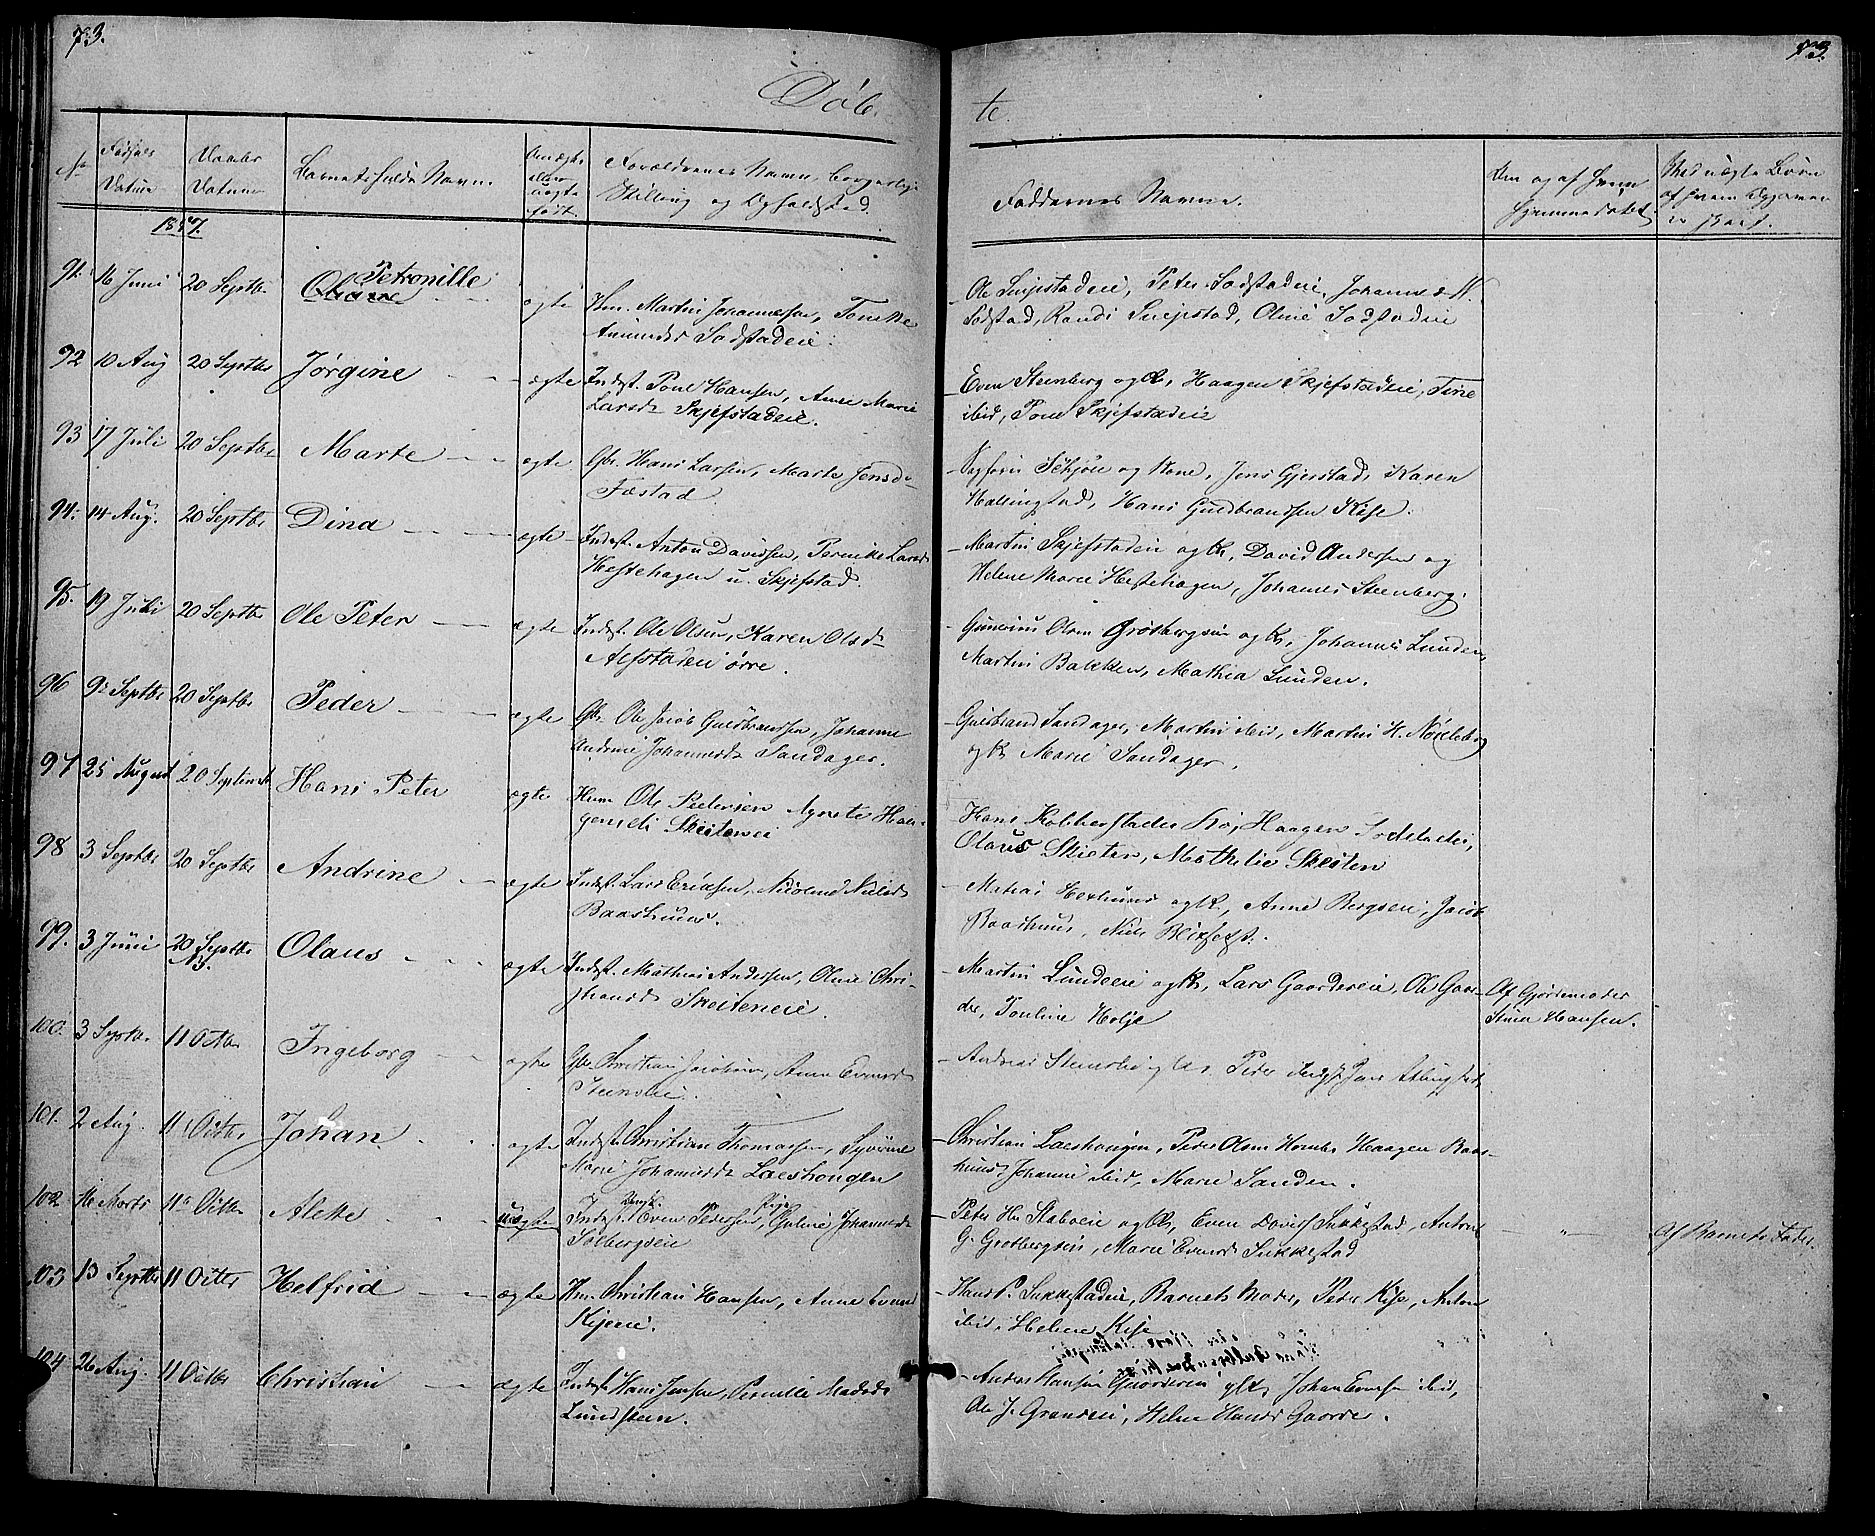 73.
73.
Døb-
te.
No
Fødsels Datum
Daabs Datum
Barnets fulde Navn.
Om ægte eller uægte født.
Forældrenes Navn, borgerlige Stilling og Opholdsted.
Faddernes Navne.
Om og af hvem hjemmedøbt.
Ved uægte Børn af hvem Opgaven er skeet.
1857.
91. 16 Juni 20 Septbr Petronille
Oliane ægte Hm. Martin Johannessen,
Amundsd. Sodstadeie.
Ole Snejstadeie, Peter Sodstadeie, Johannes N.
Sodstad, Randi Snejstad, Oline Sodstadeie
92 10 Aug 20 Septbr Jørgine ægte Indst. Poul Hansen, Anne Marie
Larsdr Skjefstadeie.
Even Steenberg og K., Haagen Skjefstadeie, Tine
ibid, Poul Skjefstadeie
93 17 Juli 20 Septbr Marte ægte Gbr. Hans Larsen, Marte Jensdr
Fæstad
Sehjøll og Kone, Jens Gjerstad, Karen
Hallingstad, Hans Guldbrandsen Kise.
94. 14 Aug. 20 Septbr Dina ægte Indst. Anton Davidsen, Pernille Larsd
Hestehagen u. Skjefstad.
Martin Skjefstadeie og K., David Andersen og
Helene Marie Hestehagen, Johannes Steenberg.
95. 19 Juli 20 Septbr Ole Peter ægte Indst. Ole Olsen, Karen Olsdr
Alfstadeie øvre.
Gunerius Olsen Grøtbergseie og K., Johannes Lunden,
Martin Bakken, Mathia Lunden.
96 9 Septbr 20 Septbr Peder ægte Gbr. Ole Jacob Guldbrandsen, Johanne
Andrine Johannesdr Sandager.
Gulbrand Sandager, Martin ibid, Martin H. Nøkleberg
og K. Marie Sandager.
97 25 August 20 Septembr Hans Peter ægte Husm Ole Pedersen Agnete Haa-
gensdr Skeiteneie
Hans Kobberstadeie, Haagen Sodstadeie,
Olaus Skieten, Mathilie Skeiten
98 3 Septbr 20 Septbr Andrine ægte Indst. Lars Eriksen, Nicoline Nielsd
Baashuus.
Mathias Hexhuus og K., Anne Bergseie, Jacob
Baashuus, Niels Blixhest.
99. 3 Juni 20 Septbr Olaus ægte Indst. Mathias Andersen, Oline Chri-
stiansd Skeiteneie.
Martin Lundeeie og K., Lars Gaardereie, Ole Gaar-
der, Pouline Holje
Af Gjordemoder
Stina Hansen.
100. 3 Septbr. 11 Octbr Ingeborg ægte Gbr. Christian Jacobsen, Anne Evensd
Steenslie.
Andreas Steenslie og K. Peder
101. 2 Aug. 11 Octbr Johan ægte Indst. Christian Thomassen, Syverine
Marie Johannesdr Laeshougen
Christian Laeshougen, Peder Olsen Hornbr Haagen Baas-
huus Johanne ibid, Marie Sanden.
102 16 Marts 11 Octbr Alette uægte Indst. Even Pedersen, Guline Johannesdr
Solbergseie
Peter Hs Staboeie og K., Even Davids Sukkestad, Anton
G. Grøtbergseie, Marie Evensd Sukkestad
Af Barnets Fader.
103 13 Septbr 11 Octbr Helfrid ægte Hm. Christian Hansen, Anne Evensd
Kiseeie.
Hans P. Sukkestadeie, Barnets Moder, Peder Kise, Anton
ibid, Helene Kise
104 26 Aug. 11 Octbr Christian ægte Indst Hans Jensen, Pernille Madsdr
Lundsteen.
Anders Hansen Gaardereie og K., Johan Evensen ibid,
Ole J. Grandeie, Helene Hansd Gaarder.